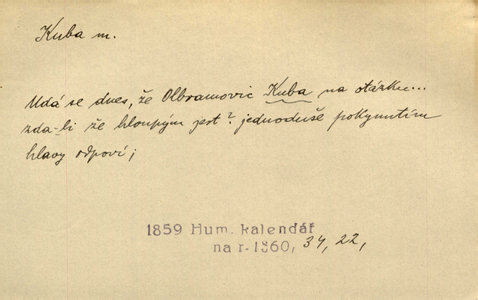 Kuba m.
Udá se dnes, že Olbramovic Kuba na otázku...
zda-li že hloupým jest? jednoduše pokynutím
hlavy odpoví;
1859 Hum. kalendář
na r. 1860, 34, 22,